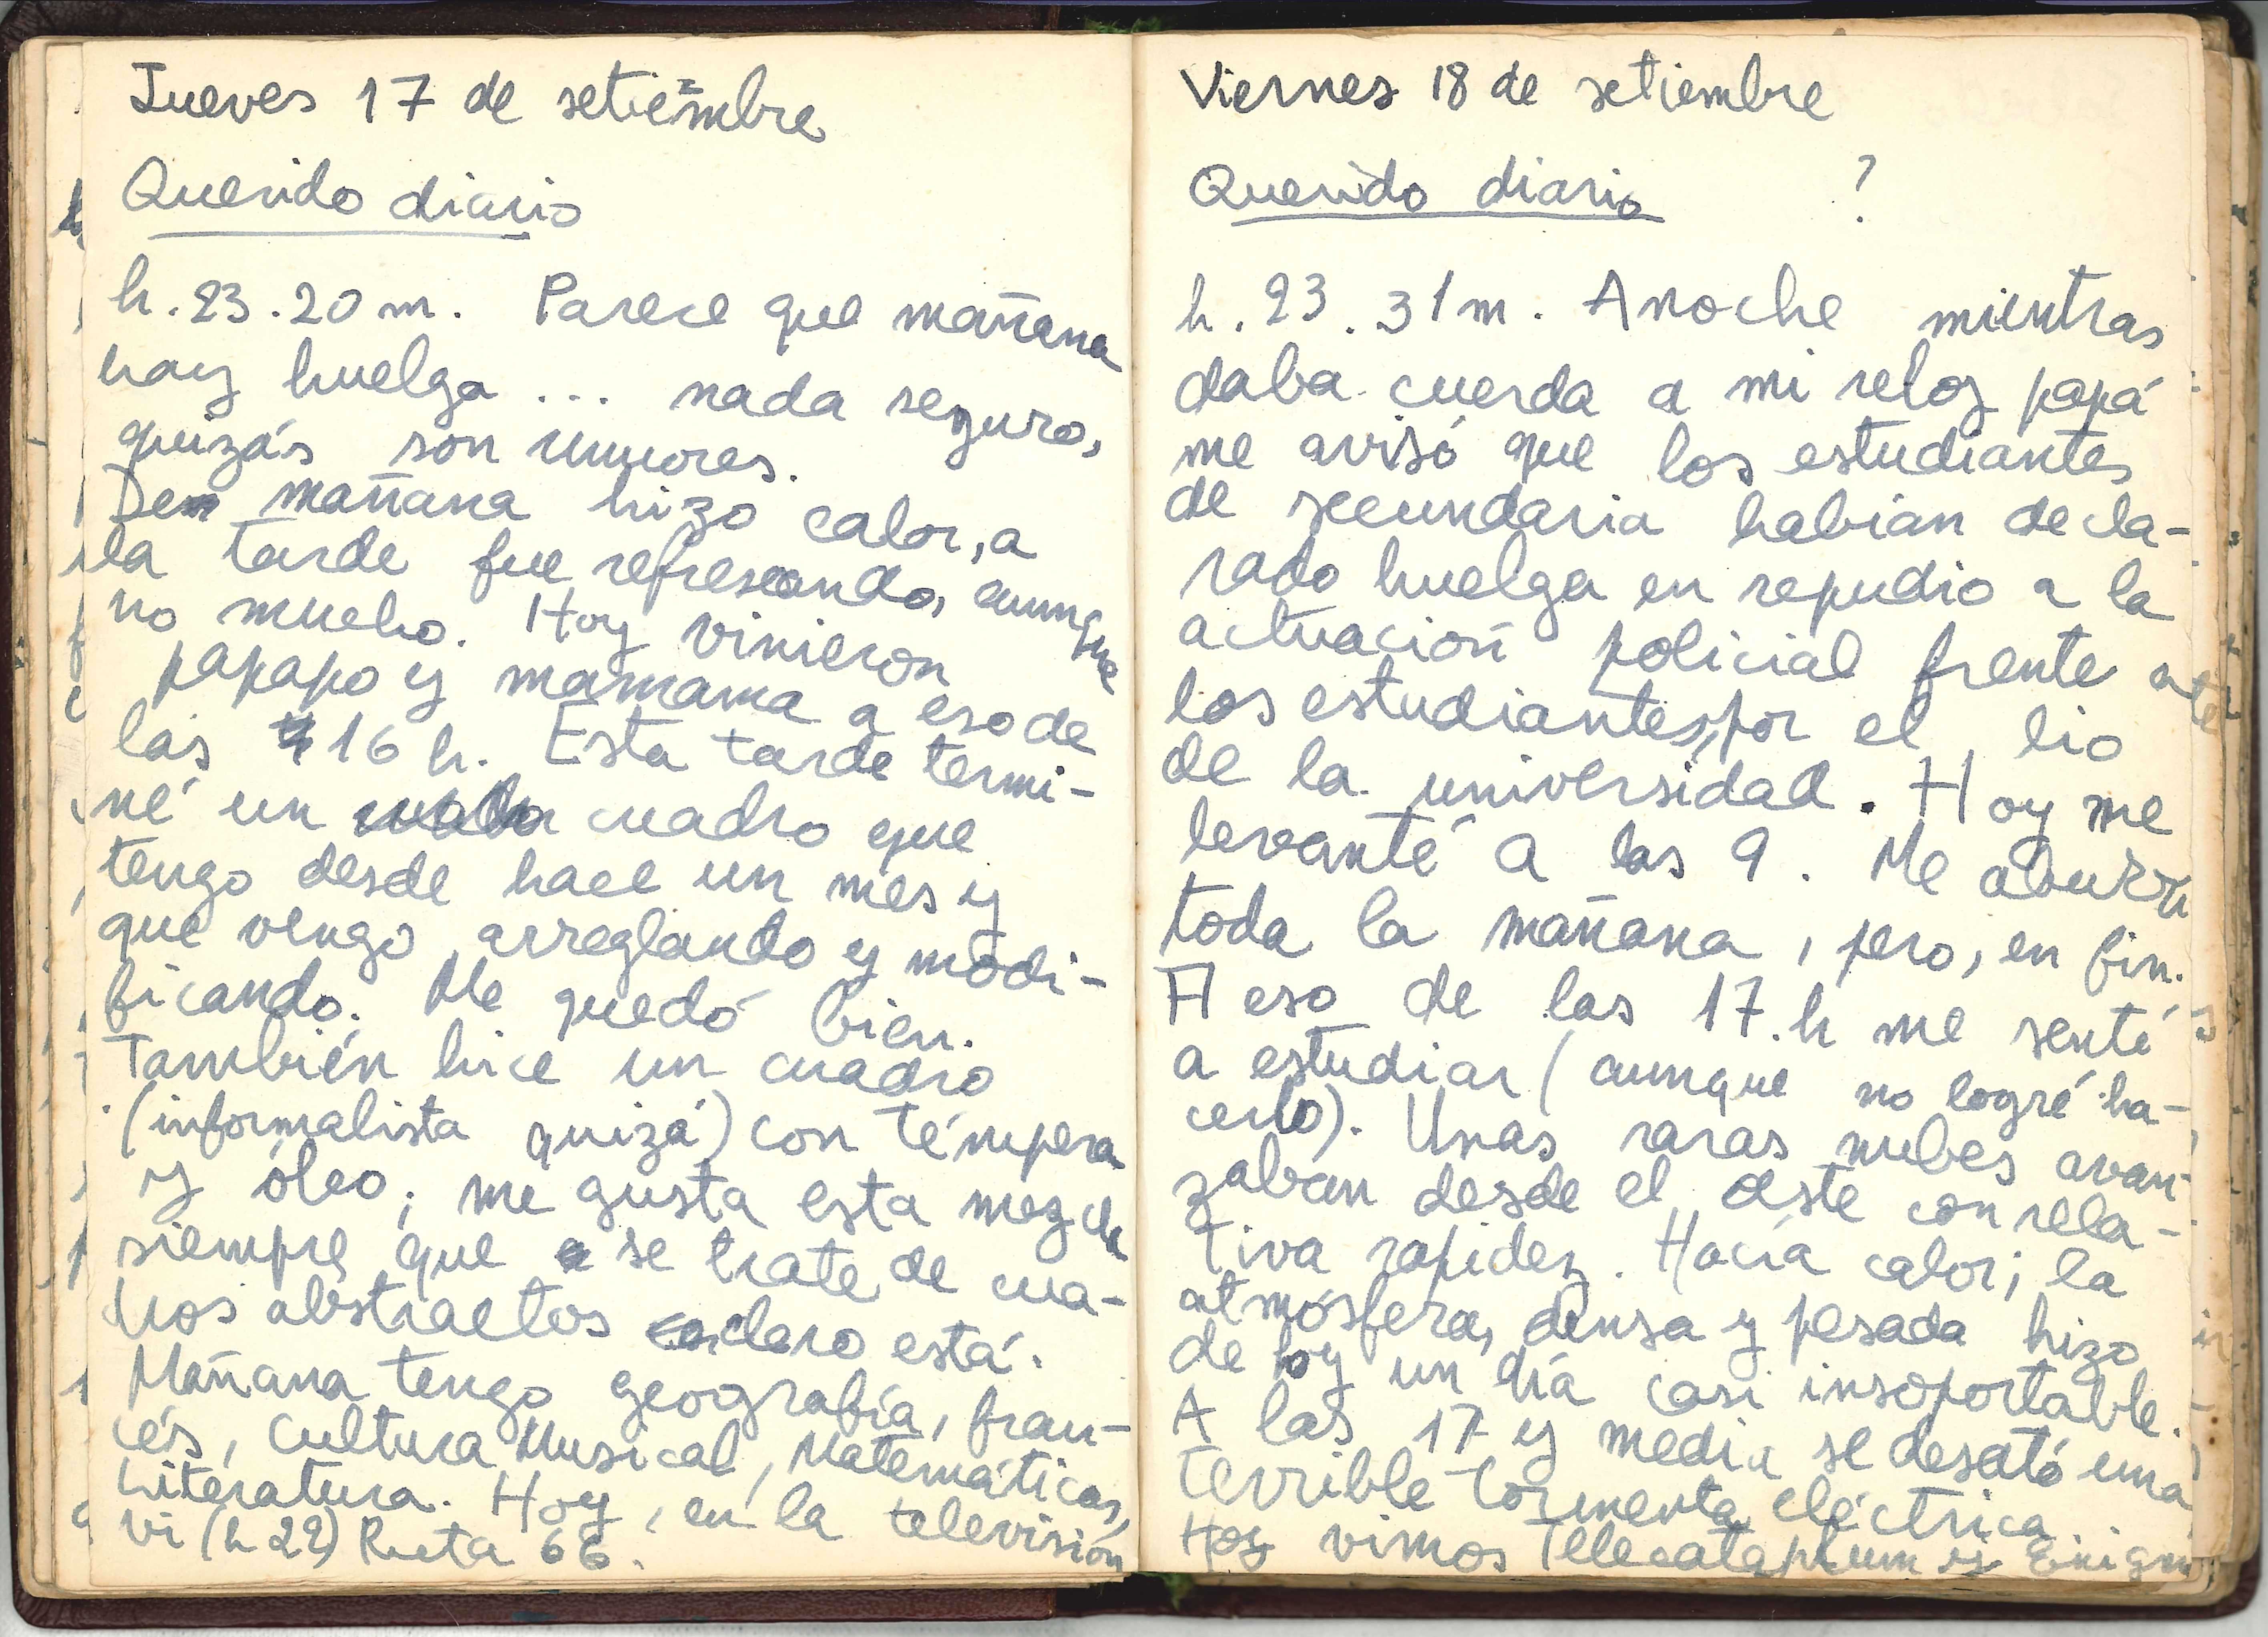 Jueves 17 de setiembre
Querido diario
h. 23.20 m. Parece que mañana
hay huelga ... nada seguro,
quizás son rumores.
De mañana hizo calor, a
la tarde fue refrescando, aunque
no mucho. Hoy vinieron
papapo y mamama a eso de
las 16 h. Esta tarde termi-
né un cuadro que
tengo desde hace un mes y
que vengo arreglando y modi-
ficando. Me quedó bien.
También hice un cuadro
(informalista quizá) con témpera
y óleo; me gusta esta mezcla
siempre que se trate de cua-
dros abstractos claro está.
Mañana tengo geografía, fran-
cés, Cultura Musical, Matemáticas,
Literatura. Hoy, en la televisión
vi (h 22) Ruta 66.
Viernes 18 de setiembre
Querido diario ?
h. 23.31 m. Anoche mientras
daba cuerda a mi reloj papá
me avisó que los estudiantes
de secundaria habían decla-
rado huelga en repudio a la
actuación policial frente a
los estudiantes, por el lio
de la universidad. Hoy me
levanté a las 9. Me aburrí
toda la mañana, pero, en fin.
A eso de las 17.h me senté
a estudiar (aunque no logré ha-
cerlo). Unas raras nubes avan-
zaban desde el oeste con rela-
tiva rapidez. Hacía calor; la
atmósfera, densa y pesada hizo
de hoy un día casi insoportable.
A las 17 y media se desató una
terrible tormenta eléctrica.
Hoy vimos Telecataplum y Enigm